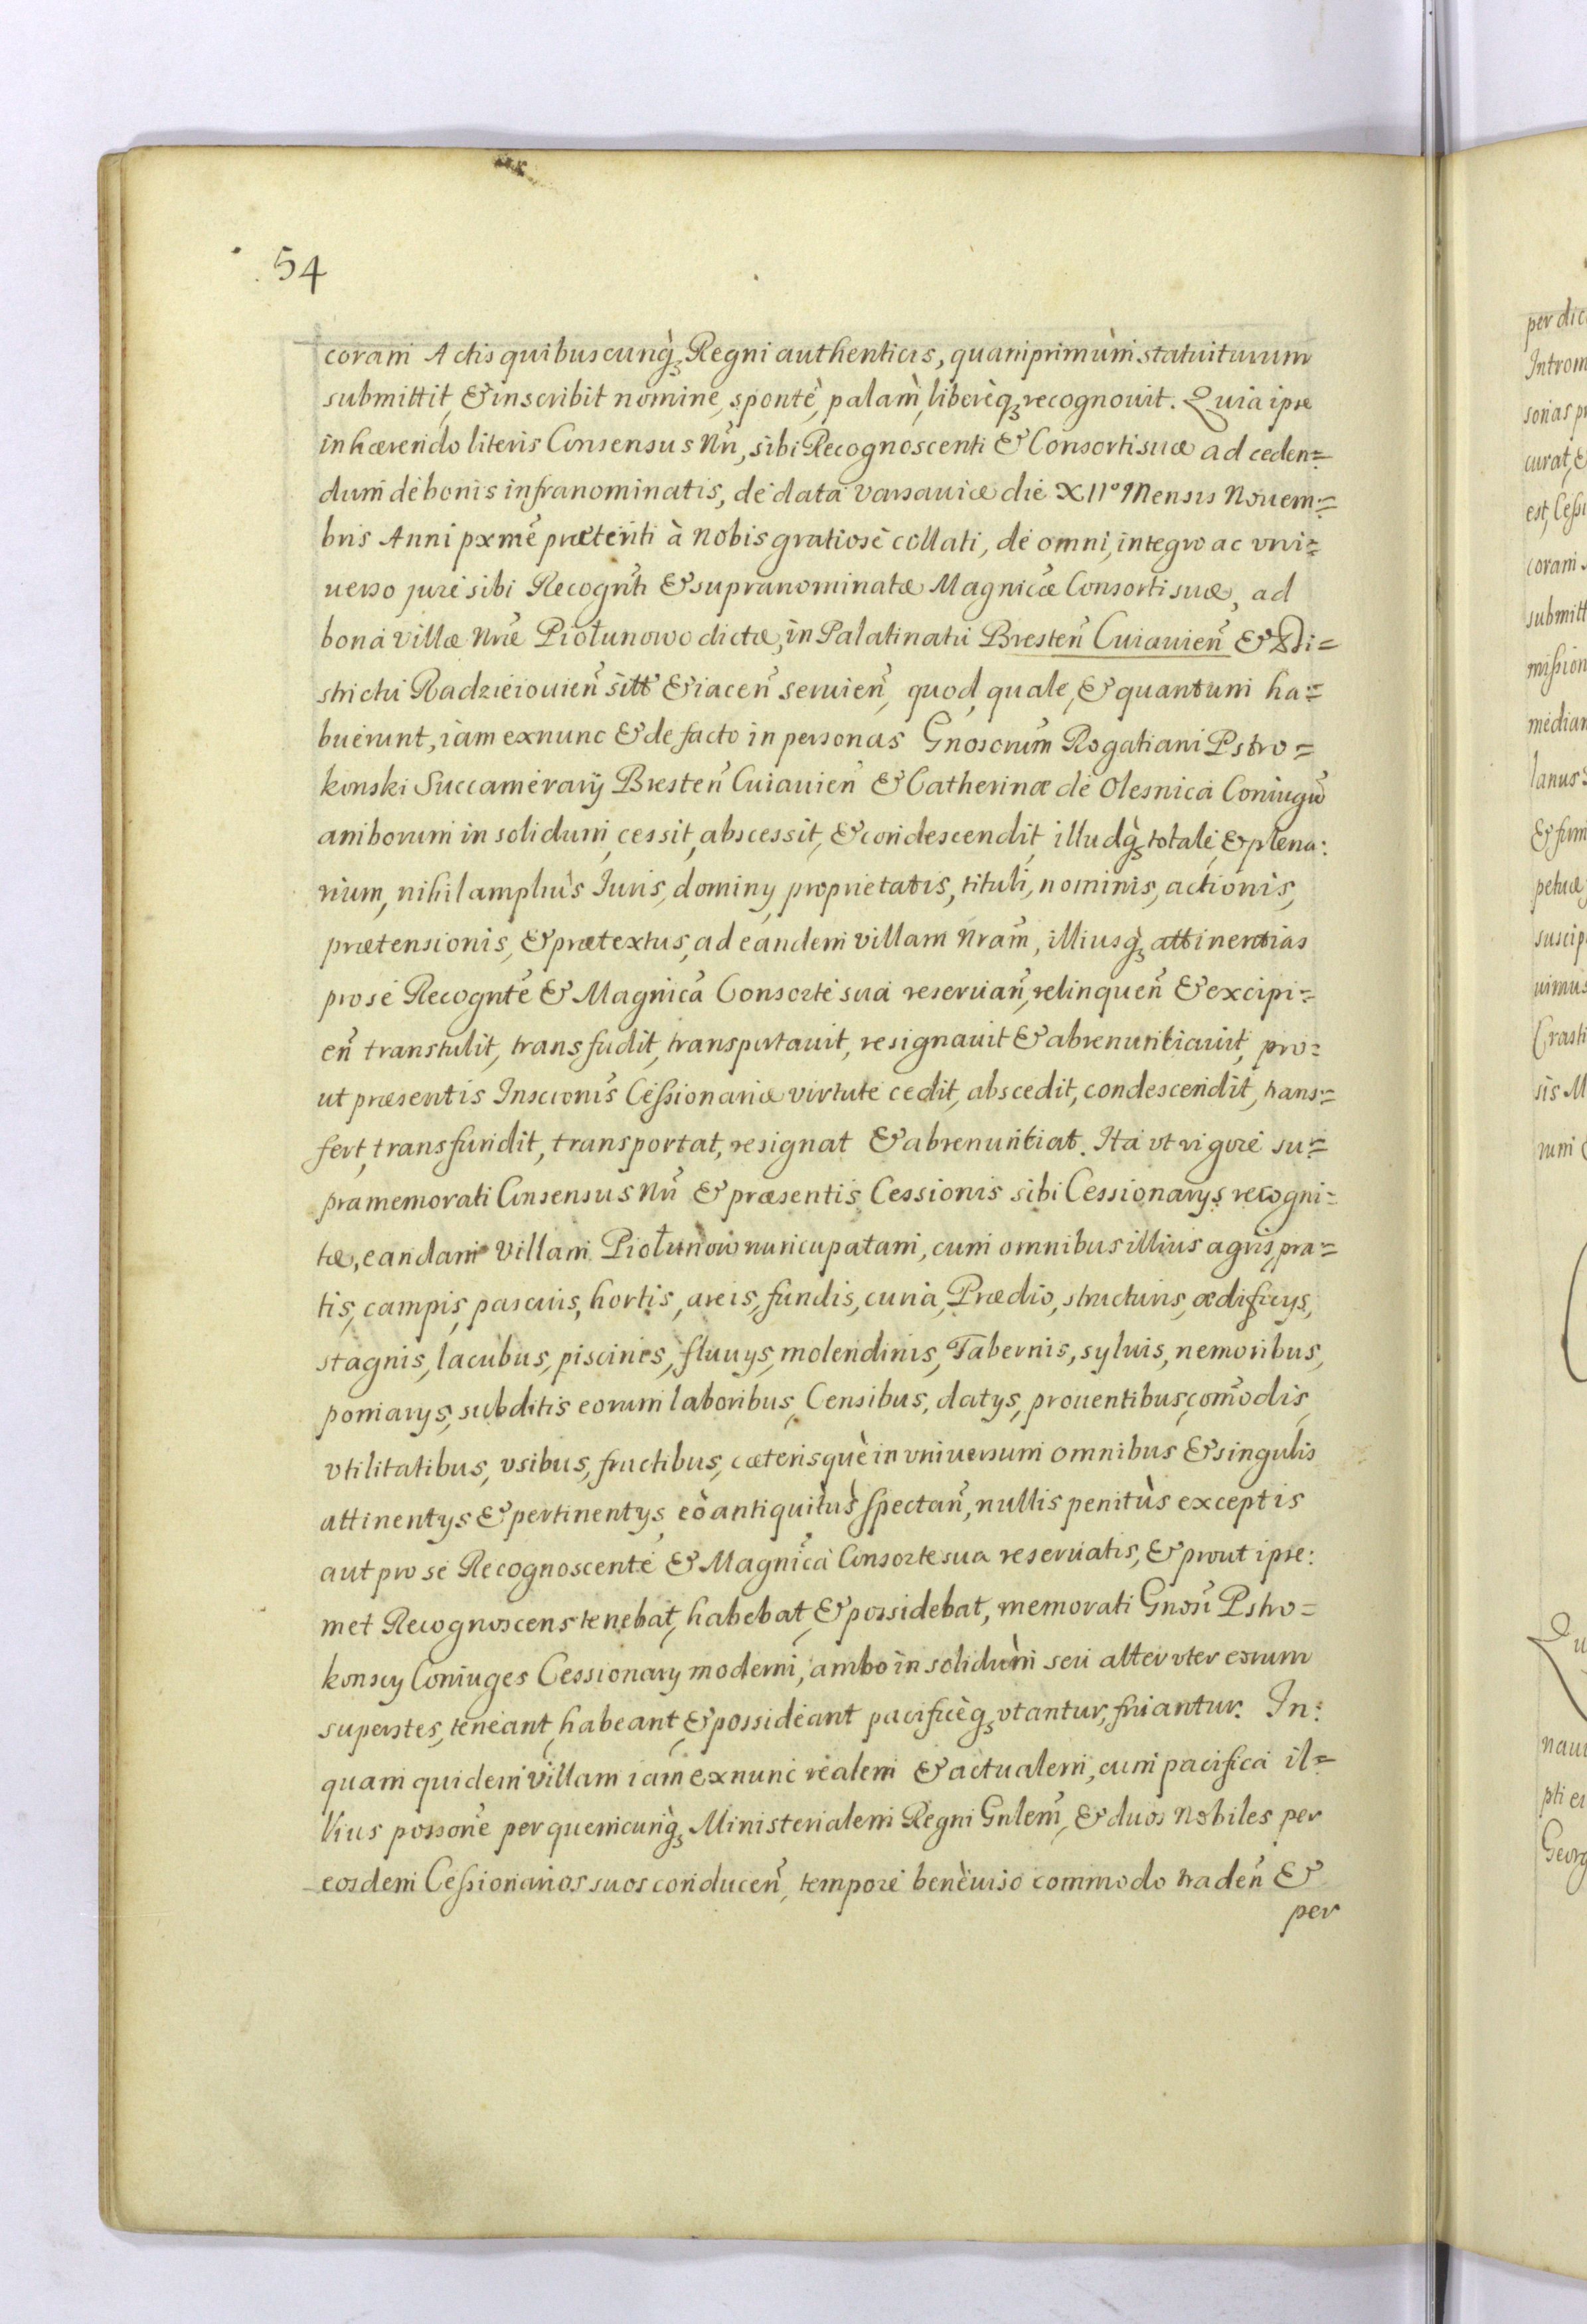 54
coram Actis quibuscunq́ꝫ Regni authenticis, quamprimùm statuiturum
submittit, & inscribit nomine, spontè, palàm, liberèqꝫ recognouit. Quia ipse
inhærendo literis Consensus Nr̃i, sibi Recognoscenti & Consorti suæ ad ceden=
dum de bonis infranominatis, de data Varsauiæ die XII° Mensis Nouem=
bris Anni pxmẽ præteriti à Nobis gratiosè collati, de omni, integro ac vni=
uerso jure sibi Recognt̃i & supranominatæ Magnicæ̃ Consorti suæ, ad
bona villæ Nræ̃ Piołunowo dictæ, in Palatinatu Bresteñ Cuiauieñ & Di=
strictu Radzieiouieñ sitt̃ & iaceñ seruieñ, quod, quale, & quantum ha=
buerunt, iam exnunc & de facto in personas Gnosorum̃ Rogatiani Pstro=
konski Succamerarij Bresteñ Cuiauieñ & Catherinæ de Olesnica Coniugũ
amborum in solidum, cessit, abscessit, & condescendit, illudq́ꝫ totale, & plena:
rium, nihil ampliùs Iuris, dominy, proprietatis, tituli, nominis, actionis,
prætensionis, & prætextus, ad eandem villam Nram̃, illiusq́ꝫ attinentias
pro se Recogntẽ & Magnicã Consorte sua reseruañ, relinqueñ & excipi=
eñ transtulit, transfudit, transportauit, resignauit & abrenuntiauit, pro=
ut præsentis Inscrionis̃ Cessionariæ virtute cedit, abscedit, condescendit, trans=
fert, transfundit, transportat, resignat & abrenuntiat. Ita vt vigore su=
pramemorati Consensus Nr̃i & præsentis Cessionis sibi Cessionarys recogni=
tæ, eandam Villam Piołunow nuncupatam, cum omnibus illius agris, pra=
tis, campis, pascuis, hortis, areis, fundis, curia, Prædio, structuris, ædificys,
stagnis, lacubus, piscinis, fluuys, molendinis, Tabernis, syluis, nemoribus,
pomarys, subditis eorum laboribus, Censibus, datys, prouentibus, com̃odis,
vtilitatibus, vsibus, fructibus, cæterisquè in vniuersum omnibus & singulis
attinentys & pertinentys eò antiquitùs spectañ, nullis penitùs exceptis
aut pro se Recognoscente & Magnicã Consorte sua reseruatis, & prout ipse:
met Recognoscens tenebat, habebat, & possidebat, memorati Gnosĩ Pstro=
konscy Coniuges Cessionary moderni, ambo in solidum seu alter vter eorum
superstes, teneant, habeant, & possideant pacificèqꝫ vtantur, fruantur. In:
quam quidem villam iam exnunc realem & actualem, cum pacifica il=
lius possonẽ per quemcunq́ꝫ Ministerialem Regni Gnlem̃, & duos Nobiles per
eosdem Cessionarios suos conduceñ, tempore benèuiso commodo tradeñ &
per